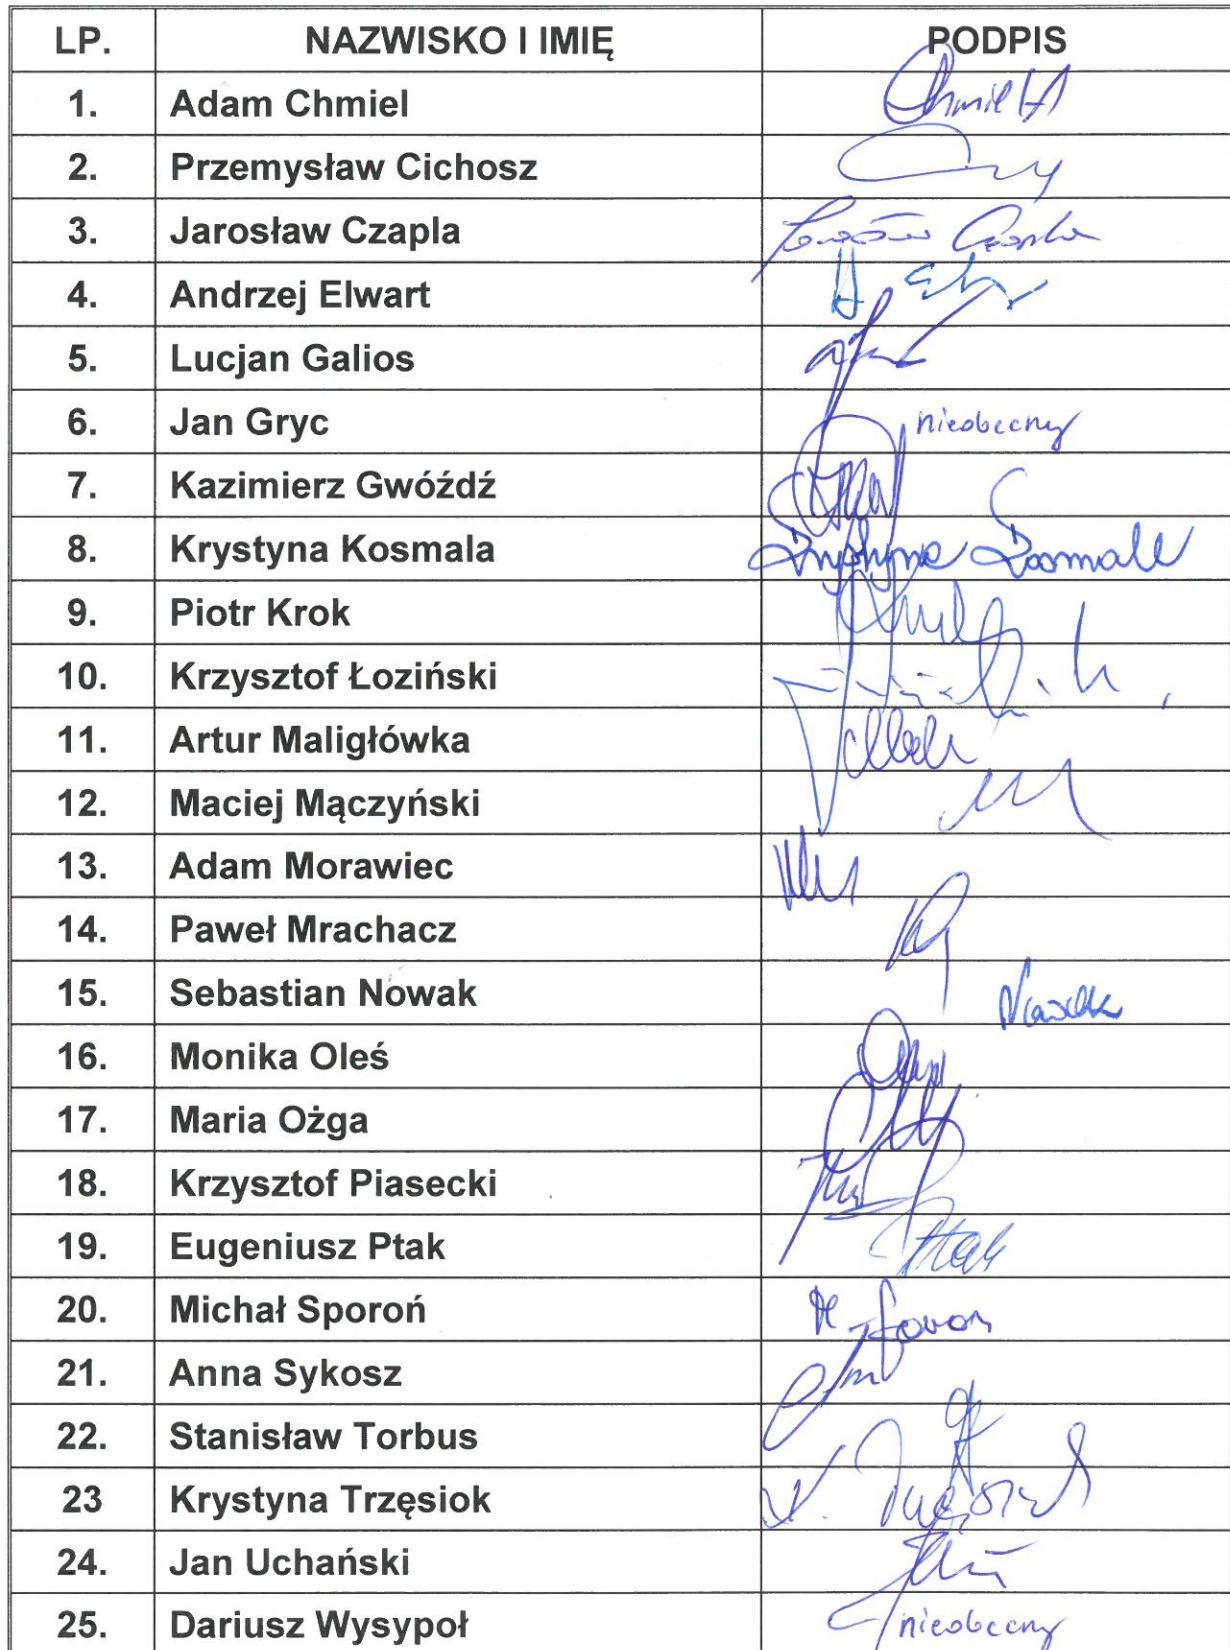 LP. NAZWISKO I IMIĘ PODPIS
1. Adam Chmiel Chmiel A
2. Przemysław Cichosz
3. Jarosław Czapla Jarosław Czapla
4. Andrzej Elwart
5. Lucjan Galios
6. Jan Gryc nieobecny
7. Kazimierz Gwóźdź
8. Krystyna Kosmala Krystyna Kosmala
9. Piotr Krok
10. Krzysztof Łoziński
11. Artur Maligłówka
12. Maciej Mączyński
13. Adam Morawiec
14. Paweł Mrachacz
15. Sebastian Nowak Nowak
16. Monika Oleś
17. Maria Ożga
18. Krzysztof Piasecki
19. Eugeniusz Ptak Ptak
20. Michał Sporoń
21. Anna Sykosz
22. Stanisław Torbus
23 Krystyna Trzęsiok
24. Jan Uchański
25. Dariusz Wysypoł nieobecny